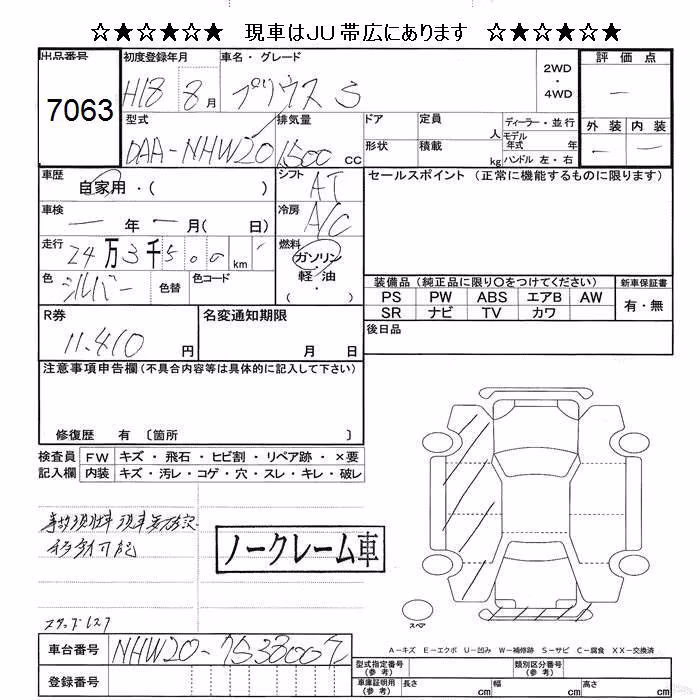 ☆★☆★☆★ 現車はJU帯広にあります ☆★☆★☆★
出品番号 初度登録年月 車名・グレード 2WD ・ 4WD 評価点
7063 H18 8月 プリウス S —
型式 排気量 ドア 定員 人 ディーラー・並行 外装 内装
DAA-NHW20 1500 CC 形状 積載 kg モデル年式 年 ハンドル 左・右 — —
車歴 自家用・( ) シフト AT セールスポイント (正常に機能するものに限ります)
車検 — 年 — 月( 日) 冷房 A/C
走行 24万3千500 km 燃料 ガソリン・軽・油
色 シルバー 色替 色コード 装備品 (純正品に限り○をつけてください) 新車保証書
PS PW ABS エアB AW 有・無
SR ナビ TV カワ
R券 11,410 円 名変通知期限 月 日 後日品
注意事項申告欄(不具合内容等は具体的に記入して下さい)
修復歴 有 〔箇所 〕
検査員 FW キズ ・ 飛石 ・ ヒビ割 ・ リペア跡 ・ ×要
記入欄 内装 キズ ・ 汚レ ・ コゲ ・ 穴 ・ スレ ・ キレ ・ 破レ
事故現状車 現車要確認
移動可能
ノークレーム車
スペア
車台番号 NHW20-
A-キズ E-エクボ U-凹み W-補修跡 S-サビ C-腐食 XX-交換済
型式指定番号(参考) 類別区分番号(参考)
登録番号 車庫証明用(参考) 長さ cm 幅 cm 高さ cm